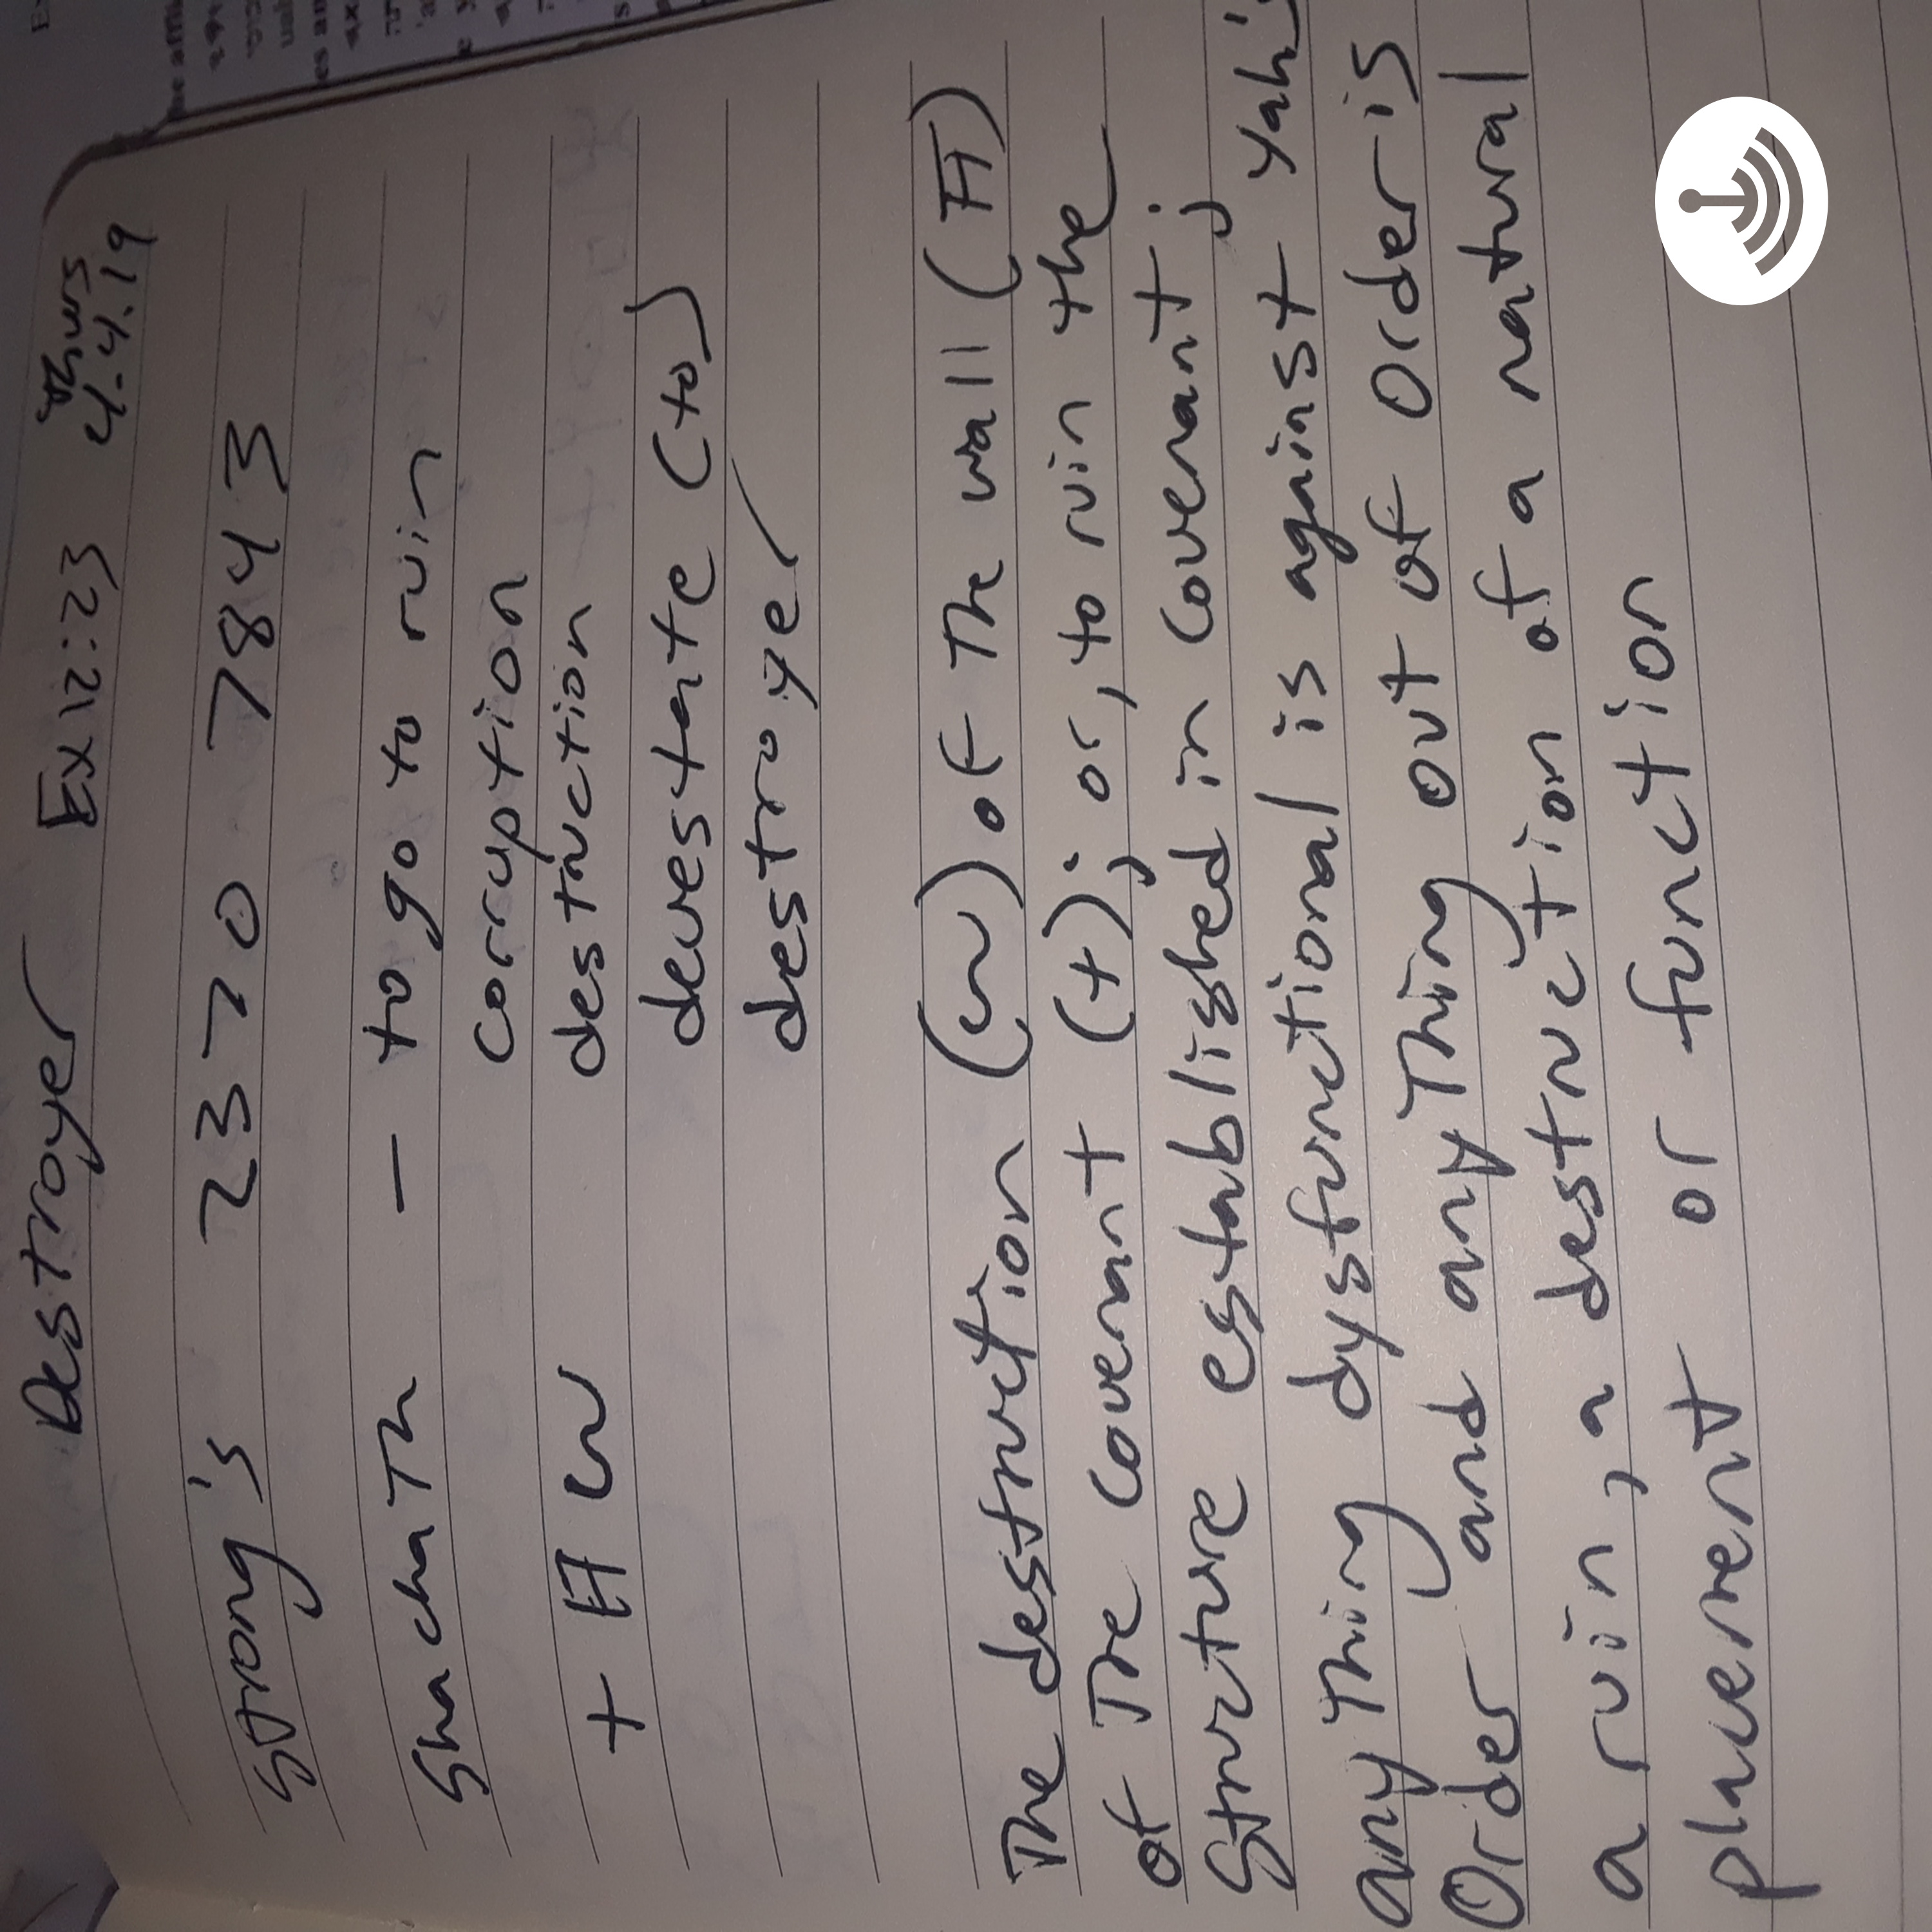 Destroyer Ex12:23
4-4-19
Strong's 2320 7843
Shachath - to go to ruin
corruption
+ 日 W destruction
devestate (to)
destroyer
The destruction (W) of the wall (日)
of the covenant (+); or, to ruin the
Structure established in covenant;
anything dysfunctional is against Yah's
Order and anything out of Order is
a ruin, a destruction of a natural
placement or function